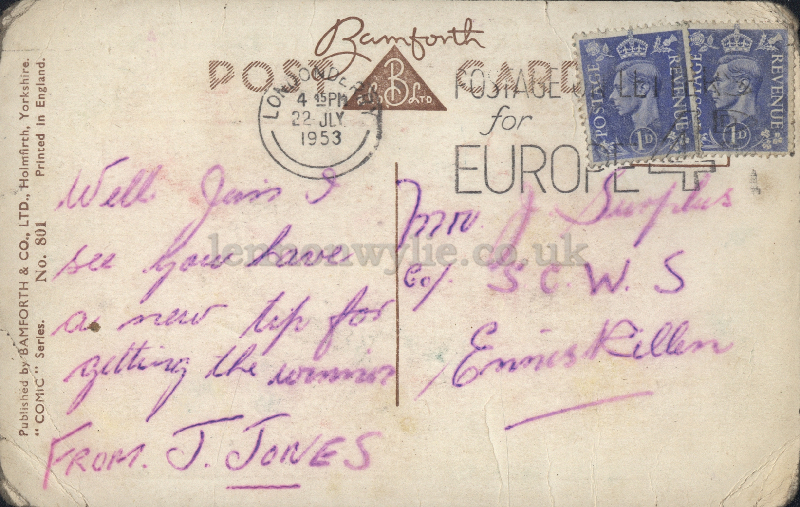 Bamforth
POST CARD
B
& Co LTD
LONDONDERRY
4 15 PM
22 JLY
1953
POSTAGE
for
EUROPE 4
POSTAGE REVENUE
1D
POSTAGE REVENUE
1D
Published by BAMFORTH & CO., LTD., Holmfirth, Yorkshire.
"COMIC" Series. No. 801 Printed in England.
Well Jim I
see you have
a new tip for
getting the winner
FROM. J. JONES
Mr J Surplus
Co/ S.C.W.S
Enniskillen
lennonwylie.co.uk